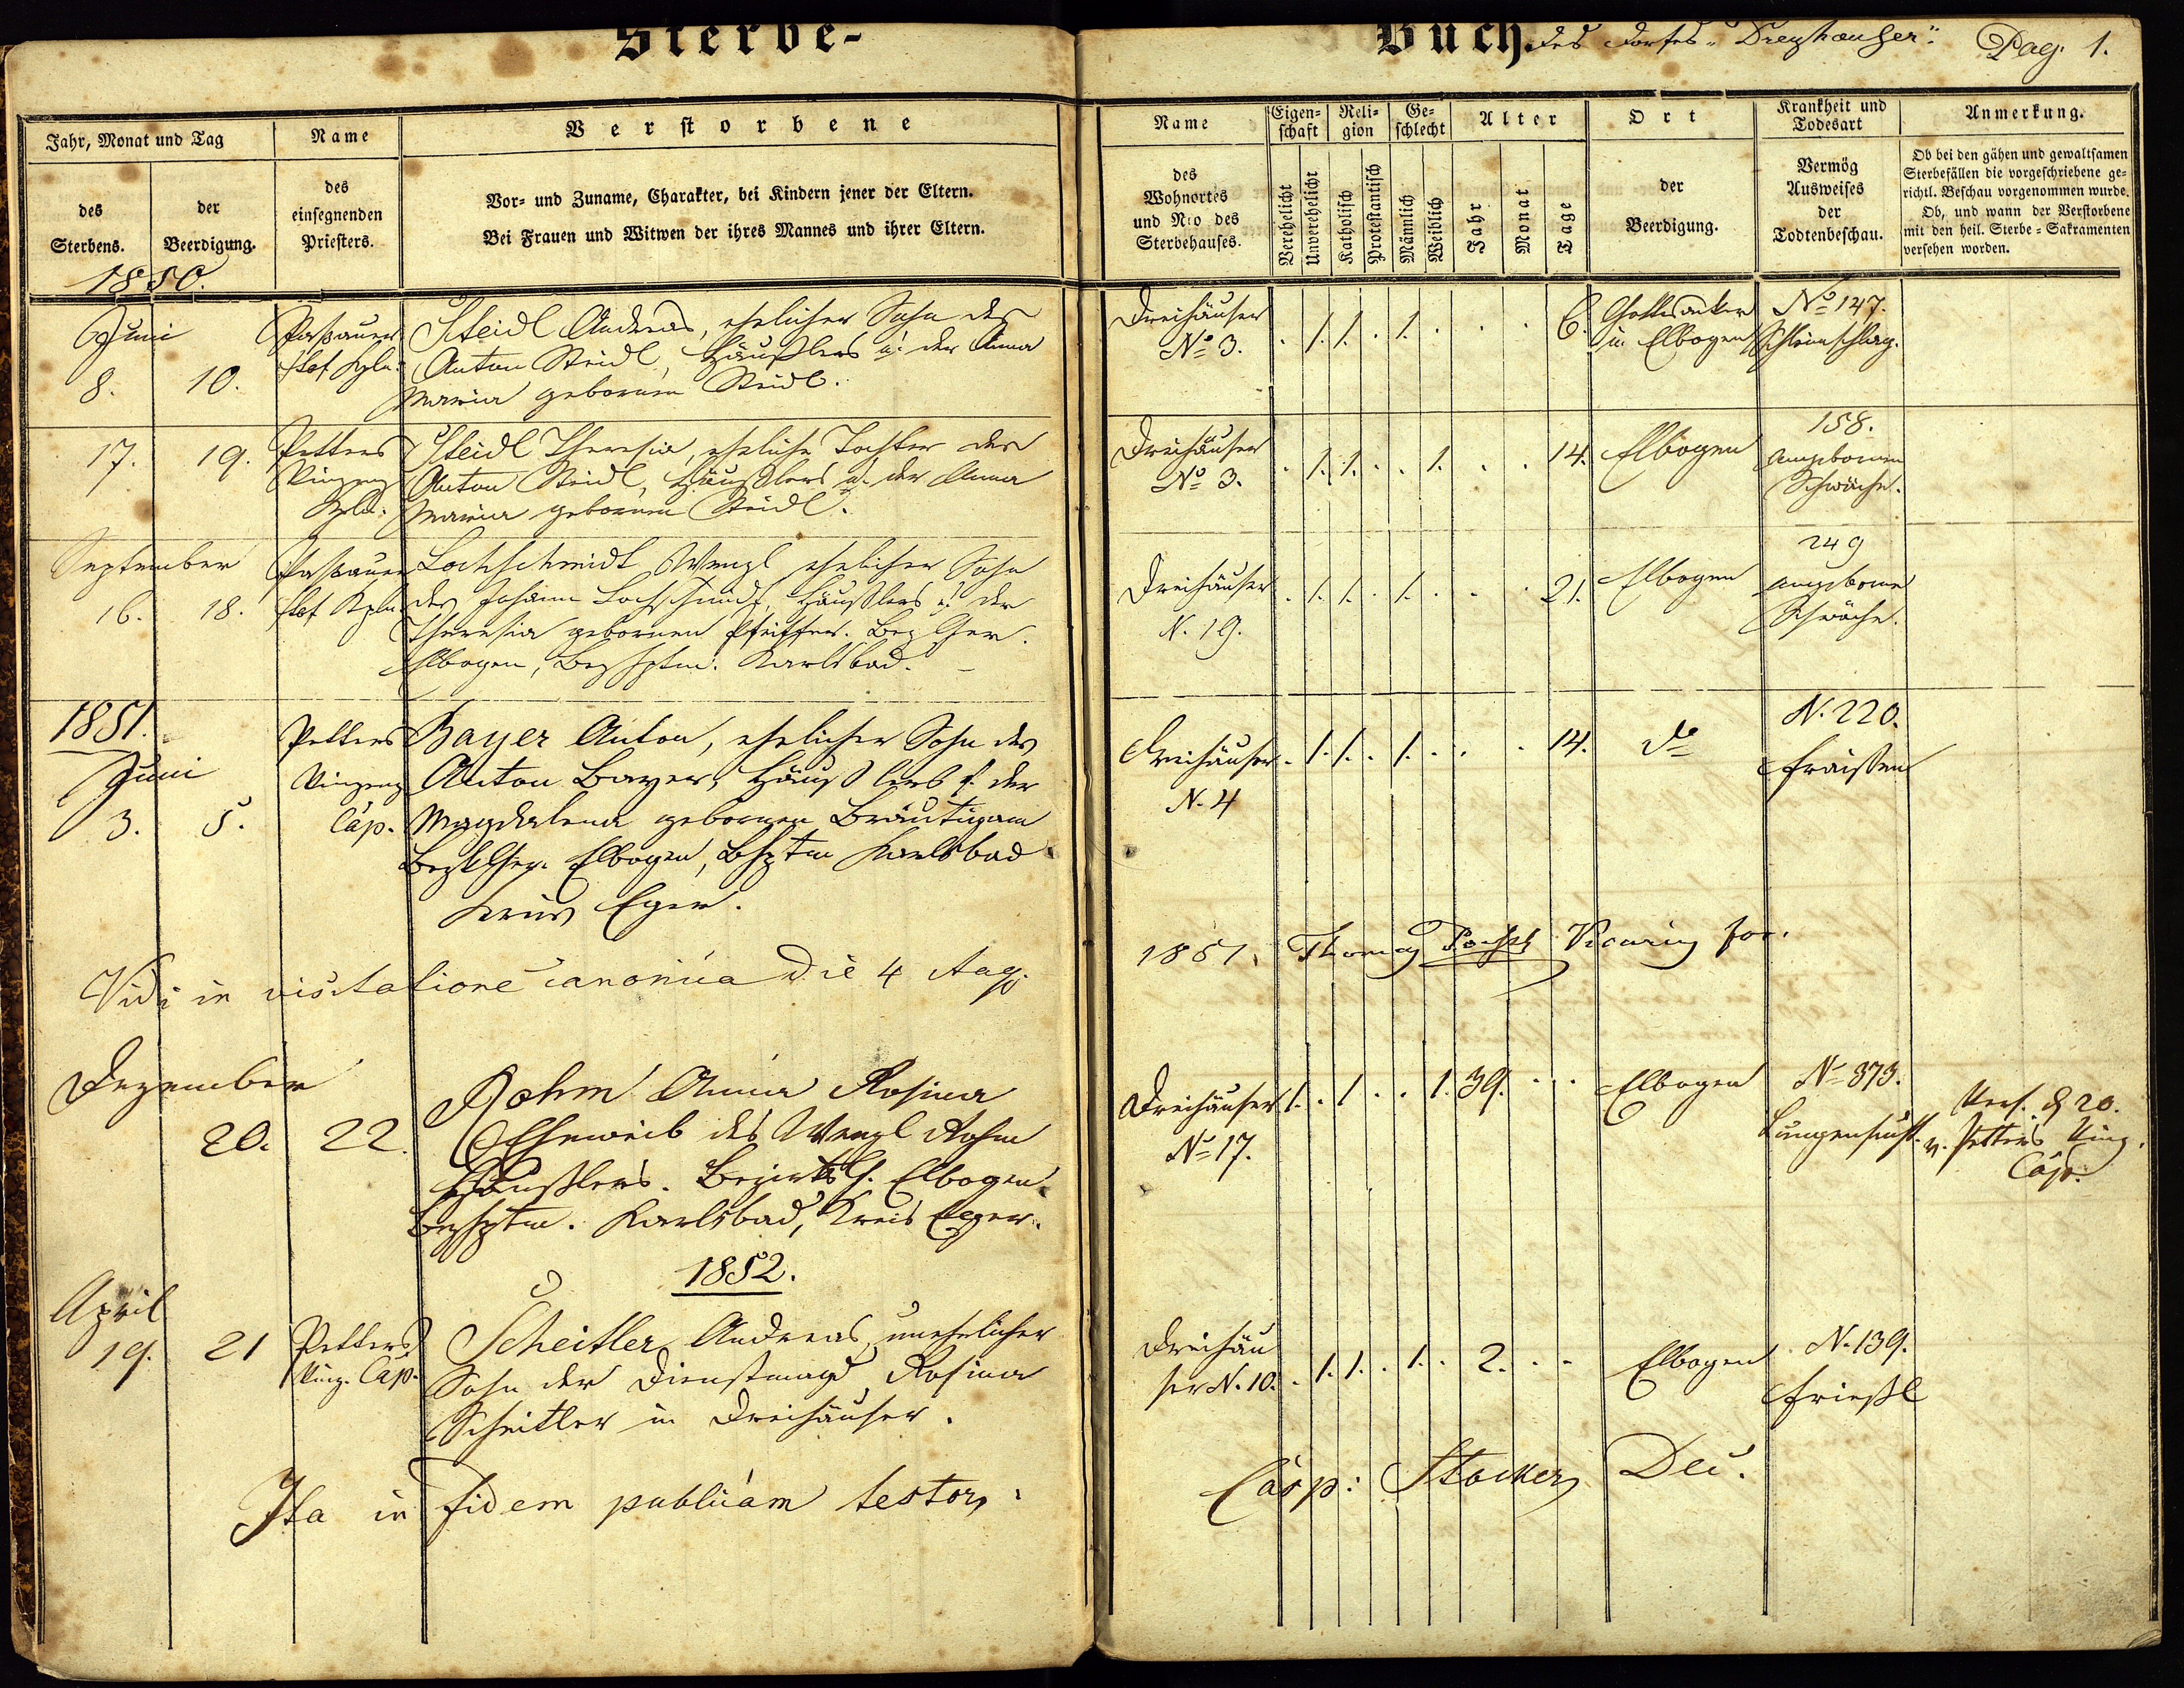 Sterbe-
Buch des Dorfes „Dreyhæuser“. Pag. 1.
Jahr, Monat und Tag
des
Sterbens.
der
Beerdigung.
Name
des
einsegnenden
Priesters.
Verstorbene
Vor- und Zuname, Charakter, bei Kindern jener der Eltern.
Bei Frauen und Witwen der ihres Mannes und ihrer Eltern.
Name
des
Wohnortes
und Nro des
Sterbehauses.
Eigen-
schaft
Verehelicht
Unverehelicht
Reli-
gion
Katholisch
Protestantisch
Ge-
schlecht
Männlich
Weiblich
Alter
Jahr
Monat
Tage
Ort
der
Beerdigung.
Krankheit und
Todesart
Vermög
Ausweises
der
Todtenbeschau.
Anmerkung.
Ob bei den gähen und gewaltsamen
Sterbefällen die vorgeschriebene ge-
richtl. Beschau vorgenommen wurde.
Ob, und wann der Verstorbene
mit den heil. Sterbe-Sakramenten
versehen worden.
1850.
Juni
8. 10.
Steidl Andreas, ehelicher Sohn des
Anton Steidl, Häußlers u. der Anna
Maria gebornen Steidl.
Dreihäuser
No 3.
. 1. 1. . 1. . . . 6.
Gottesacker
in Elbogen
No 147.
Schleimschlag.
17. 19.
Petters
Vinzenz
Kpl.
Steidl Theresia, eheliche Tochter des
Anton Steidl, Häußlers u. der Anna
Maria gebornen Steidl.
Dreihäuser
No 3.
. 1. 1. . . 1. . . 14.
Elbogen
158.
angeborne
Schwäche.
September
16. 18.
Lochschmidt Wenzl ehelicher Sohn
des Johann Lochschmidt, Häußlers u. der
Theresia gebornen Pfeiffer. Bez Ger.
Elbogen, Bezhptm. Karlsbad.
Dreihäuser
N. 19.
. 1. 1. . 1. . . . 21.
Elbogen
249
angeborne
Schwäche.
1851.
Juni
3. 5.
Petters
Vinzenz
Cap.
Bayer Anton, ehelicher Sohn des
Anton Bayer, Häußlers u. der
Magdalena gebornen Bräutigam
Bezk Ger. Elbogen, Bhptm Karlsbad
Kreis Eger.
Dreihäuser
N. 4
. 1. 1. . 1. . . . 14.
do
N. 220.
Fraißen
Vidi in visitatione canonica die 4 Aug.
1851. Thomas Vicarius for.
Dezember
20. 22.
Rohm Anna Rosina
Eheweib des Wenzl Rohm
Häußlers. Bezirks G. Elbogen
Bezhptm. Karlsbad, Kreis Eger.
Dreihäuser
No 17.
1. . 1. . . 1. 39. . .
Elbogen
No 373.
Lungensucht.
Vers. d 20.
v. Petters Vinz.
Cap.
1852.
April
19. 21
Petters
Vinz. Cap.
Scheitler Andreas, unehelicher
Sohn der Dienstmagd Rosina
Scheitler in Dreihäuser.
Dreihäu
ser N. 10.
. 1. 1. . 1. . 2. . -
Elbogen
N. 139.
Frießl
Ita in fidem publicam testor,
Casp: Stocker Dec.